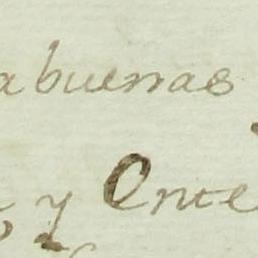 abuenas
y Onte